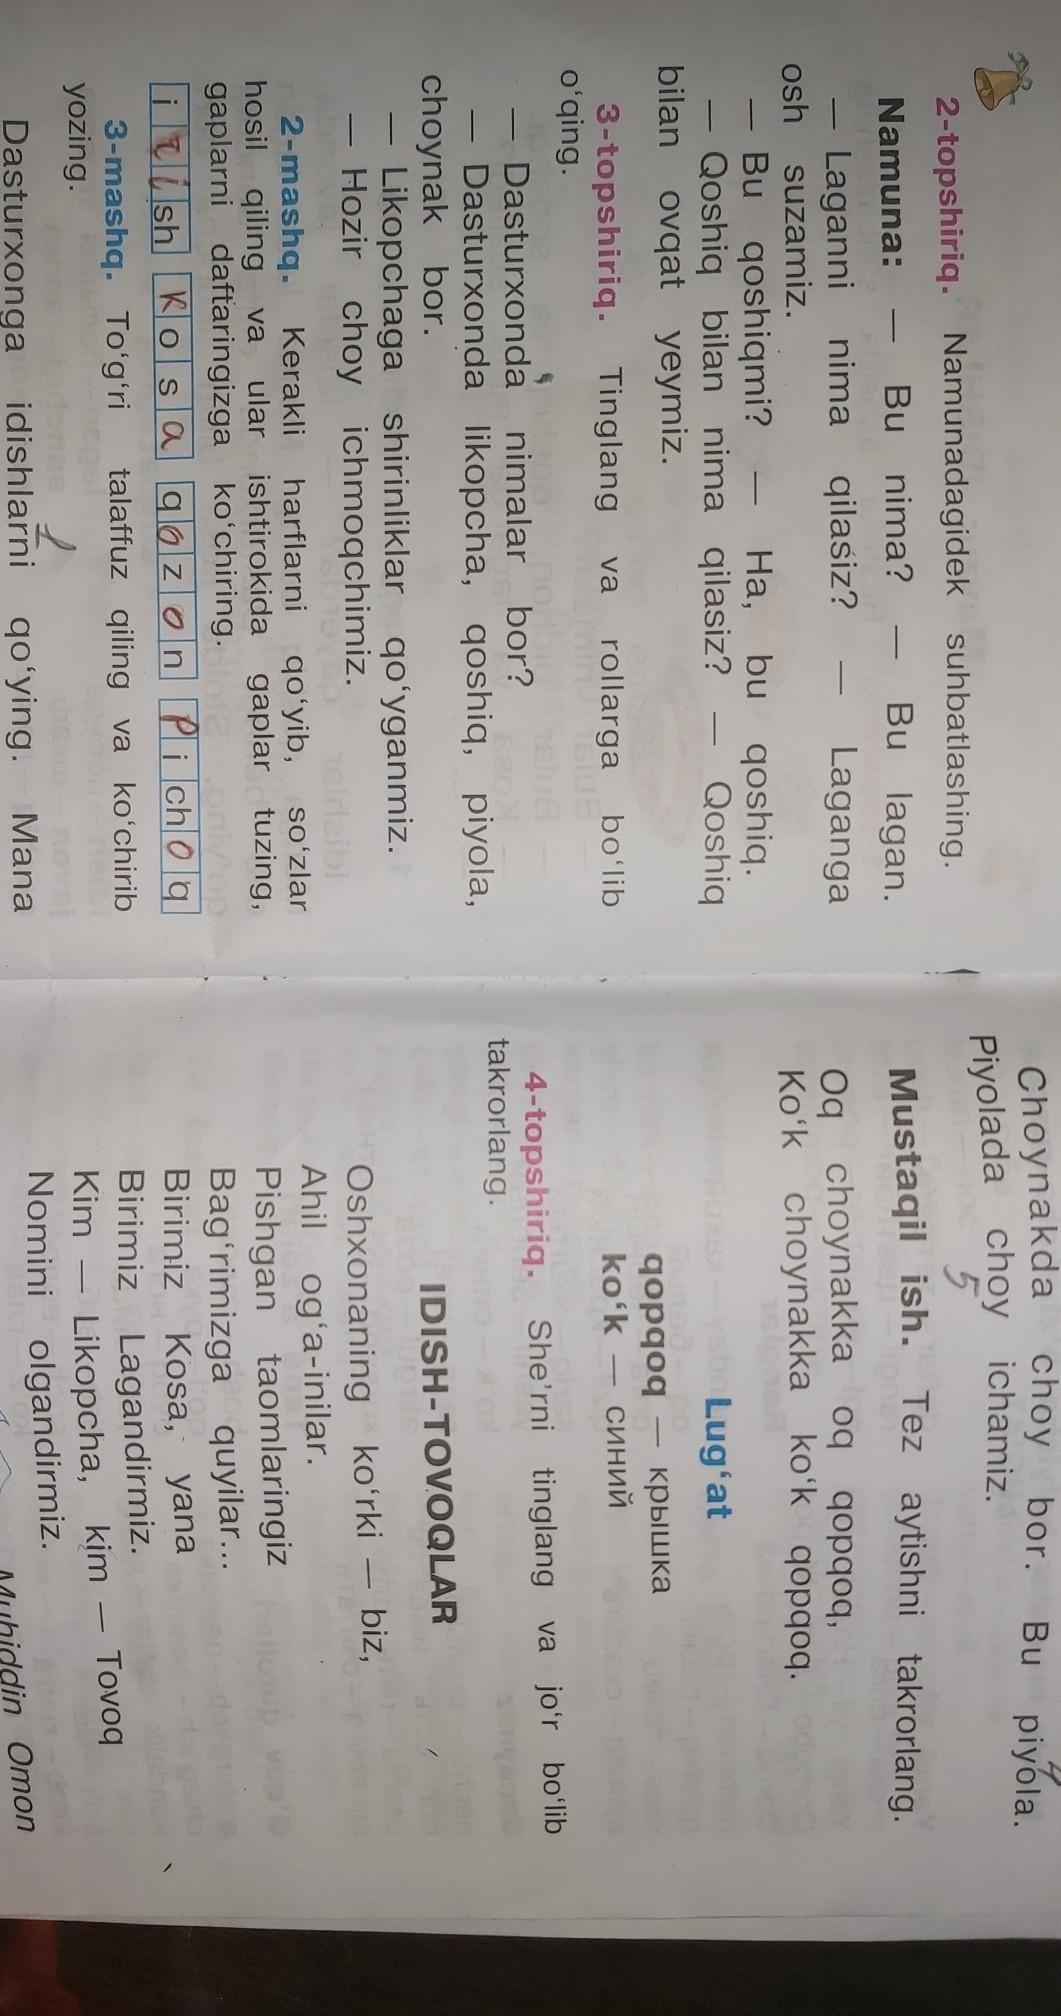 2-topshiriq. Namunadagidek suhbatlashing.
Namuna: — Bu nima? — Bu lagan.
— Laganni nima qilasiz? — Laganga
osh suzamiz.
— Bu qoshiqmi? — Ha, bu qoshiq.
— Qoshiq bilan nima qilasiz? — Qoshiq
bilan ovqat yeymiz.
3-topshiriq. Tinglang va rollarga bo‘lib
o‘qing.
— Dasturxonda nimalar bor?
— Dasturxonda likopcha, qoshiq, piyola,
choynak bor.
— Likopchaga shirinliklar qo‘yganmiz.
— Hozir choy ichmoqchimiz.
2-mashq. Kerakli harflarni qo‘yib, so‘zlar
hosil qiling va ular ishtirokida gaplar tuzing,
gaplarni daftaringizga ko‘chiring.
i sh k o s a q o z o n p i ch o q
3-mashq. To‘g‘ri talaffuz qiling va ko‘chirib
yozing.
1
Dasturxonga idishlarni qo‘ying. Mana
4
Choynakda choy bor. Bu piyola.
5
Piyolada choy ichamiz.
Mustaqil ish. Tez aytishni takrorlang.
Oq choynakka oq qopqoq,
Ko‘k choynakka ko‘k qopqoq.
Lug‘at
qopqoq — крышка
ko‘k — синий
4-topshiriq. She’rni tinglang va jo‘r bo‘lib
takrorlang.
IDISH-TOVOQLAR
Oshxonaning ko‘rki — biz,
Ahil og‘a-inilar.
Pishgan taomlaringiz
Bag‘rimizga quyilar...
Birimiz Kosa, yana
Birimiz Lagandirmiz.
Kim — Likopcha, kim — Tovoq
Nomini olgandirmiz.
Muhiddin Omon